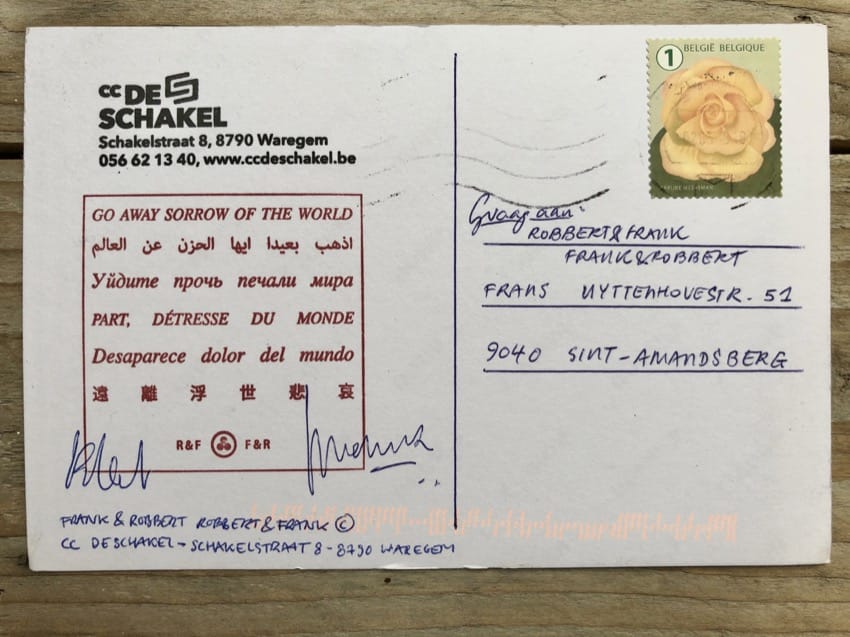 cc DE
SCHAKEL
Schakelstraat 8, 8790 Waregem
056 62 13 40, www.ccdeschakel.be
GO AWAY SORROW OF THE WORLD
اذهب بعيدا ايها الحزن عن العالم
Уйдите прочь печали мира
PART, DÉTRESSE DU MONDE
Desaparece dolor del mundo
遠離浮世悲哀
R&F F&R
FRANK & ROBBERT ROBBERT & FRANK ©
CC DE SCHAKEL - SCHAKELSTRAAT 8 - 8790 WAREGEM
1 BELGIË BELGIQUE
Graag aan:
ROBBERT & FRANK
FRANK & ROBBERT
FRANS UYTTENHOVESTR. 51
9040 SINT-AMANDSBERG